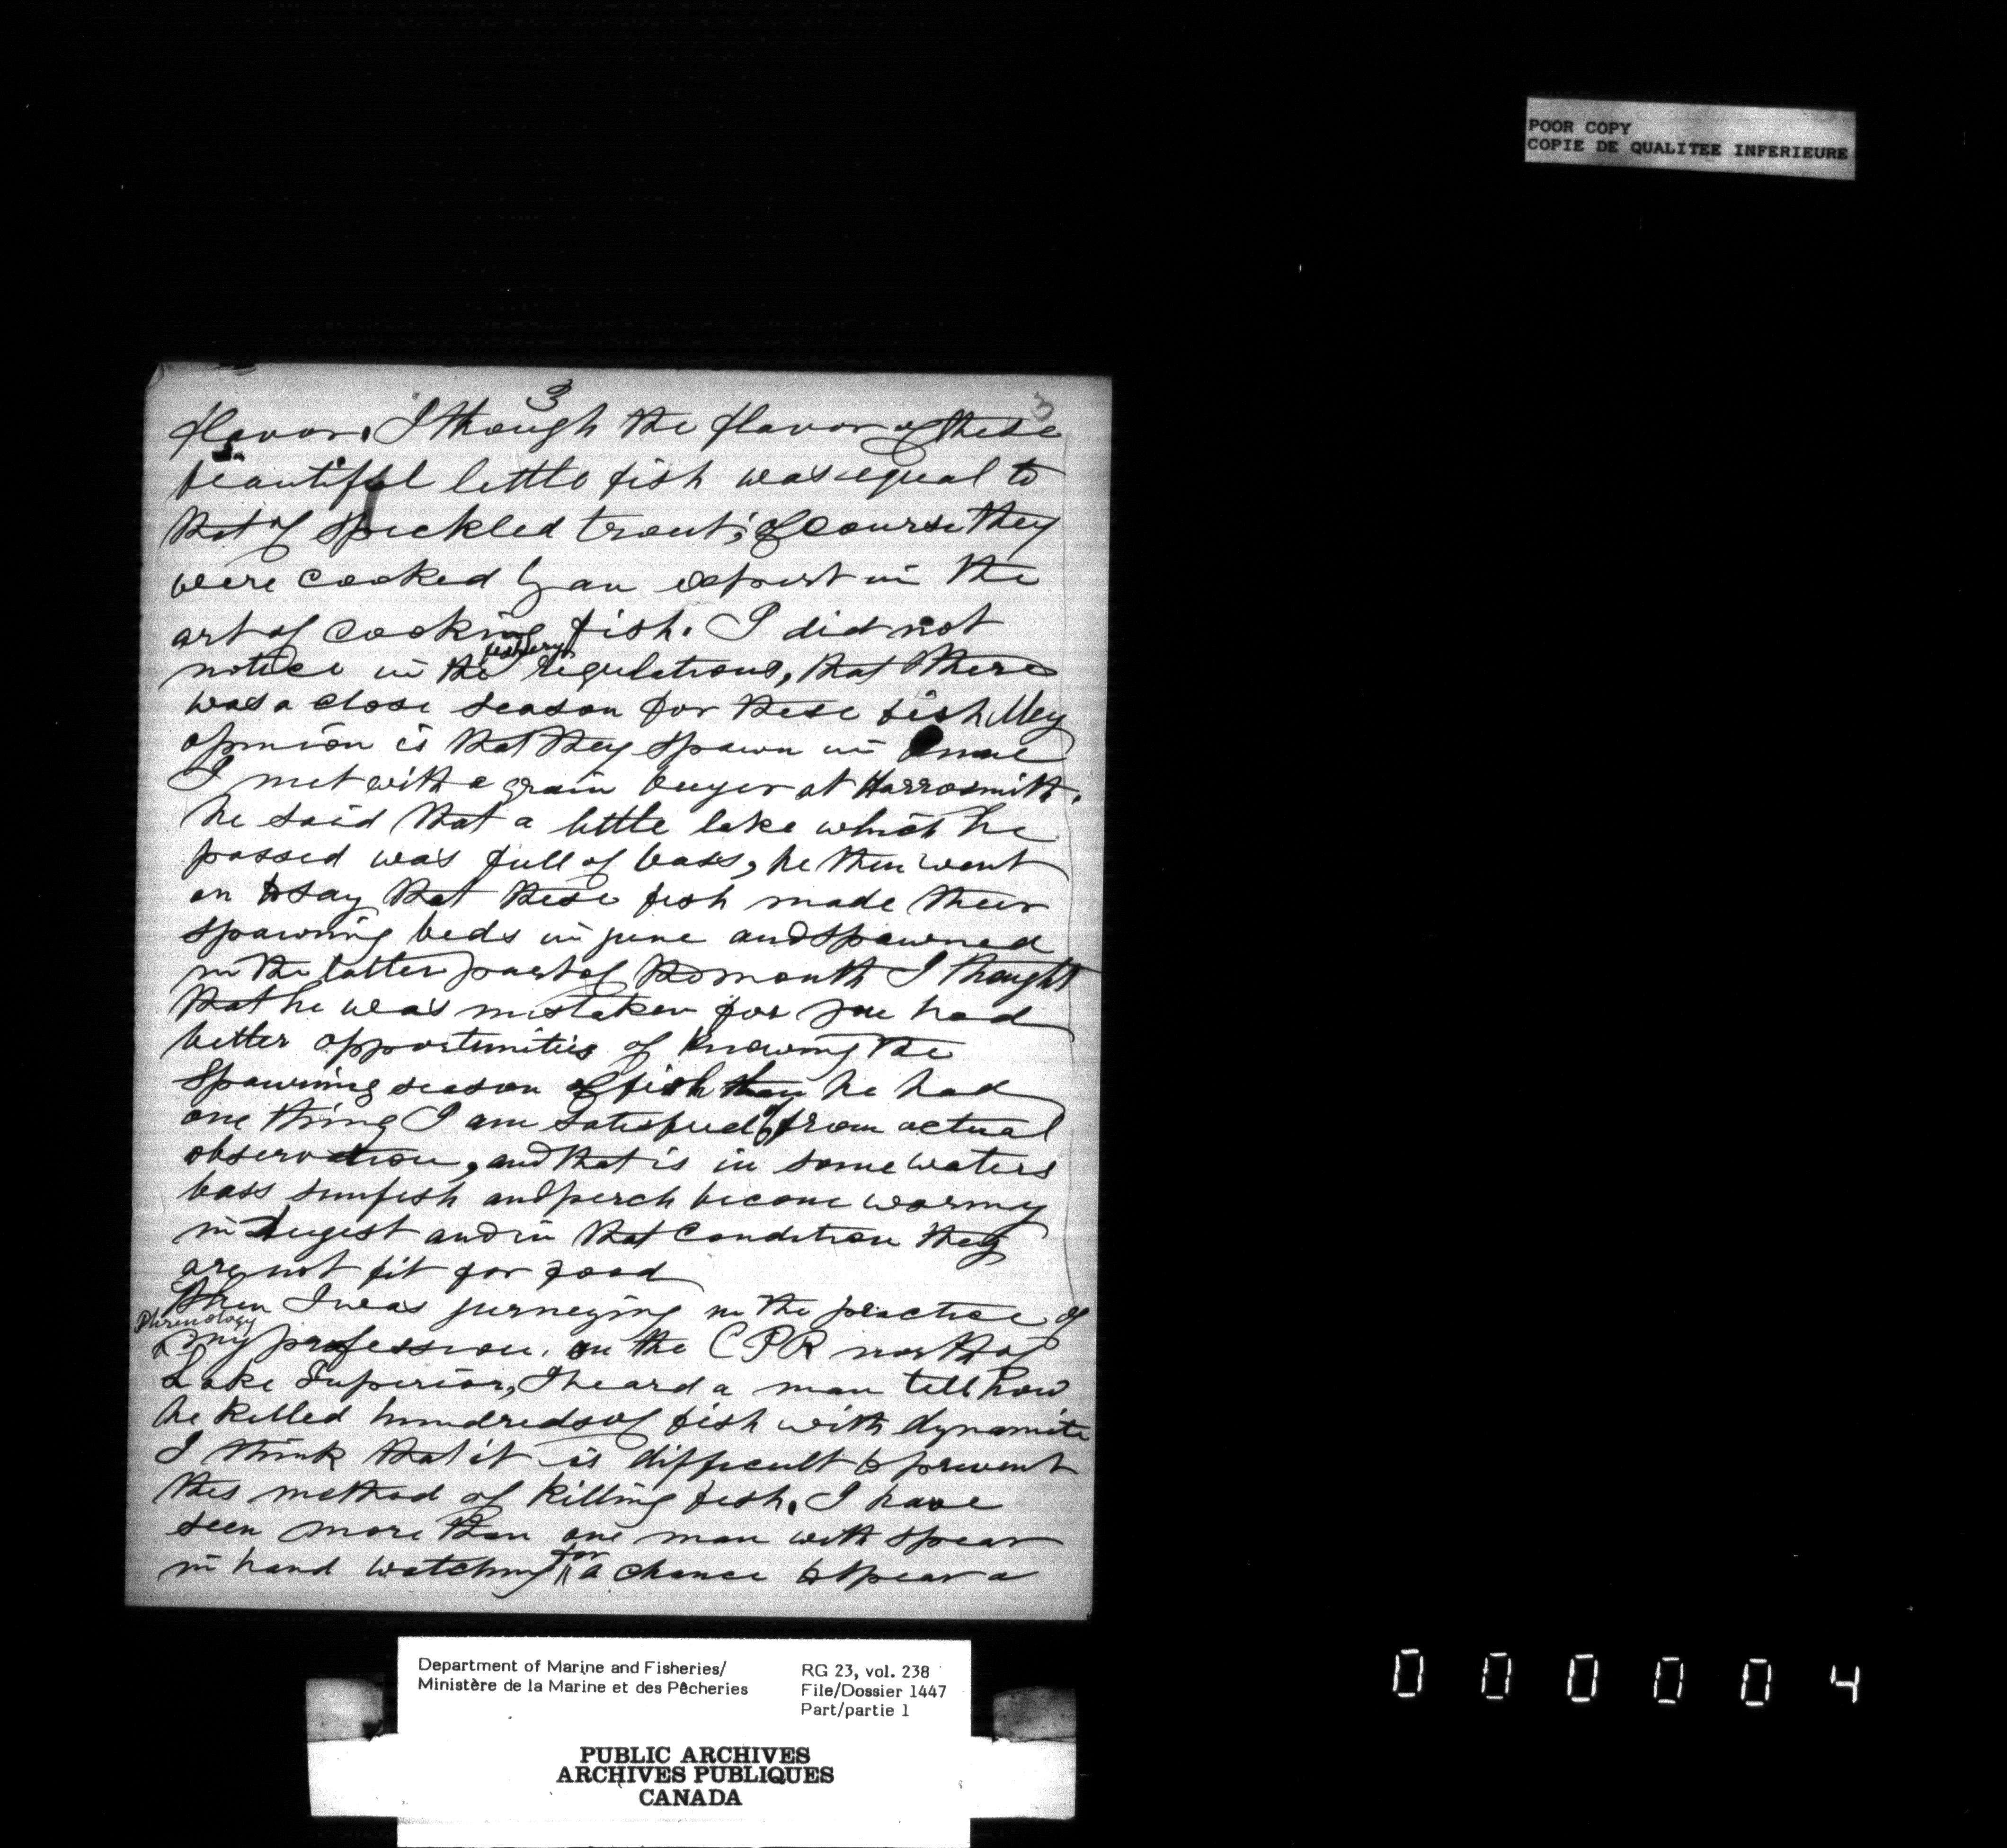 POOR COPY
COPIE DE QUALITEE INFERIEURE
3
3
flavor. I though the flavor of these
beautiful little fish was equal to
that of speckled trout; of course they
were cooked by an expert in the
art of cooking fish. I did not
notice in the fishery regulations, that there
was a close season for these fish. My
opinion is that they spawn in June
I met with a grain buyer at Harrosmith.
he said that a little lake which he
passed was full of bass, he then went
on to say that these fish made their
spawning beds in june and spawned
in the latter part of the month I thought
that he was mistaken for you had
better opportunities of knowing the
spawning season of fish than he had
one thing I am satisfied of from actual
observation, and that is in some waters
bass sunfish and perch become wormy
in Augest and in that condition they
are not fit for food
When I was jurneying in the practice of
Phrenology
my profession. on the CPR north of
Lake Superior, I heard a man tell how
he killed hundreds of fish with dynamite
I think that it is difficult to prevent
this method of killing fish. I have
seen more than one man with spear
in hand watching for a chance to spear a
Department of Marine and Fisheries/
Ministère de la Marine et des Pêcheries
RG 23, vol. 238
File/Dossier 1447
Part/partie 1
PUBLIC ARCHIVES
ARCHIVES PUBLIQUES
CANADA
000004